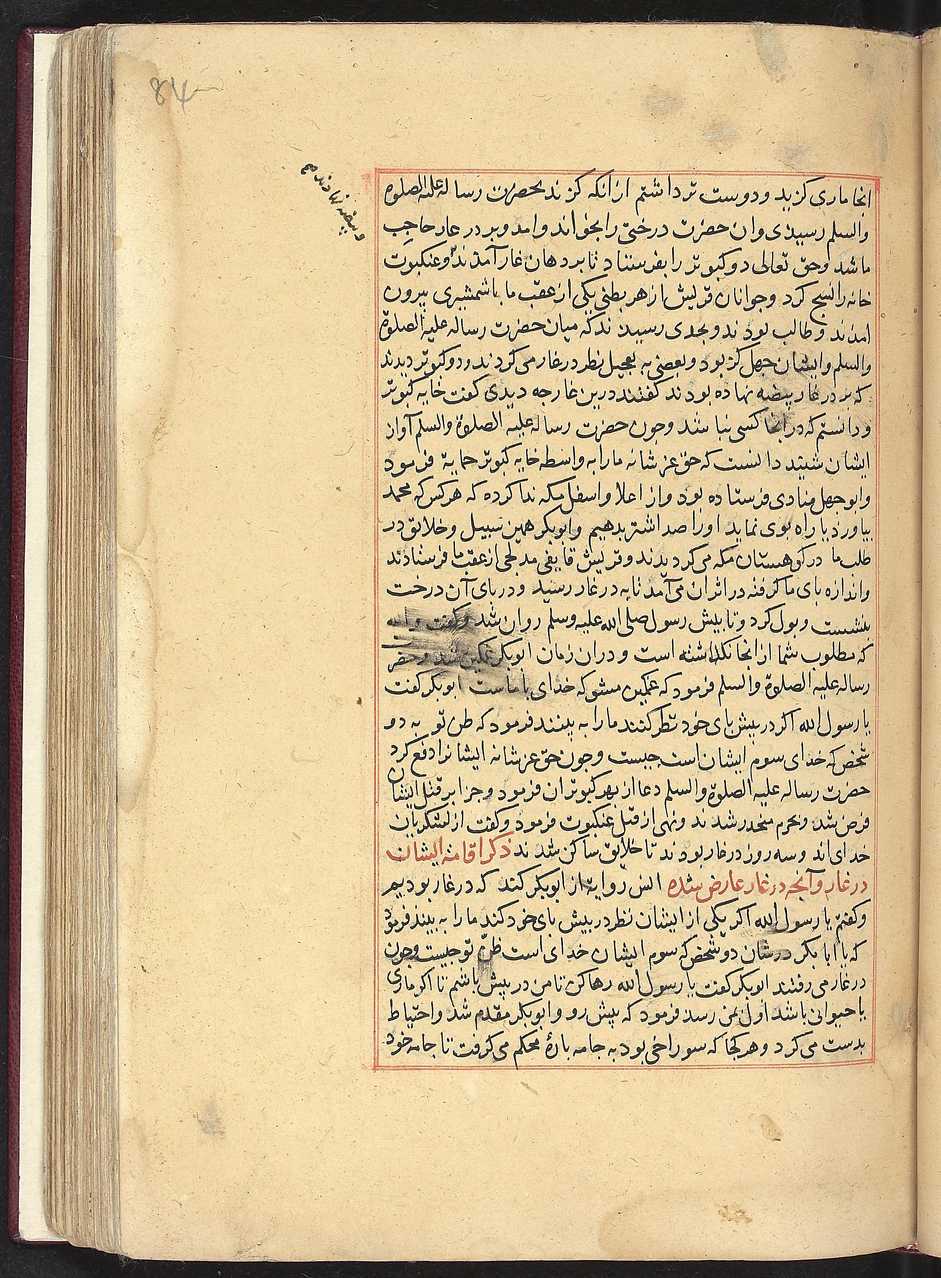 84
و بیضه نهادند
انجا ماری کزید و دوست تر داشتم از انکه کزند بحضرت رساله علیه الصلوة
والسلم رسیدی وان حضرت درختی را بخواند وامد وبر در غار حاجب
ما شد وحق تعالی دو کبوتر را بفرستاد تا بر دهان غار آمدند وعنکبوت
خانه را نسج کرد وجوانان قریش از هر بطنی یکی از عقب ما باشمشیری بیرون
امدند وطالب بودند وبحدی رسیدند که میان حضرت رساله علیه الصلوة
والسلم وایشان چهل کز بود وبعضی به تعجیل نظر در غار می کردند ودو کبوتر دیدند
که بر در غار بیضه نهاده بودند کفتند درین غار چه دیدی کفت خایه کبوتر
ودانستم که در انجا کسی نباشد وچون حضرت رساله علیه الصلوة والسلم آواز
ایشان شنید دانست که حق عز شانه ما را به واسطه خایه کبوتر حمایة فرمود
وابو جهل منادی فرستاده بود واز اعلا واسفل مکه ندا کرده که هر کس که محمد
بیاورد یا راه بوی نماید اورا صد اشتر بدهیم وابوبکر همین سبیل وخلائق در
طلب ما در کوهستان مکه می کردیدند وقریش قایفی مدلجی از عقب ما فرستادند
واندازه پای ما کرفته در اثر ان می آمد تا به در غار رسید ودر پای آن درخت
بنشست وبول کرد وتا پیش رسول صلی الله علیه وسلم روان شد وکفت والله
که مطلوب شما از انجا نکذاشته است ودران زمان ابوبکر غمکین شد وحضرت
رساله علیه الصلوة والسلم فرمود که غمکین مشو که خدای با ماست ابوبکر کفت
یا رسول الله اکر در پیش پای خود نظر کنند ما را به بینند فرمود که ظن تو به دو
شخص که خدای سوم ایشان است چیست وچون حق عز شانه ایشانرا دفع کرد
حضرت رساله علیه الصلوة والسلم دعا از بهر کبوتران فرمود وجزا بر قتل ایشان
فرض شد وبحرم منحدر شدند ونهی از قتل عنکبوت فرمود وکفت از لشکریان
خدای اند وسه روز در غار بودند تا خلایق ساکن شدند ذکر اقامة ایشان
در غار وآنچه در غار عارض شده انس روایة از ابوبکر کند که در غار بودیم
وکفتم یا رسول الله اکر یکی از ایشان نظر در پیش پای خود کند ما را به بیند فرمود
که یا ابا بکر در شان دو شخص که سوم ایشان خدای است ظن تو چیست وچون
در غار می رفتند ابوبکر کفت یا رسول الله رها کن تا من در پیش باشم تا اکر ماری
یا حیوانی باشد اول بمن رسد فرمود که پیش رو وابوبکر مقدم شد واحتیاط
بدست می کرد وهر کجا که سوراخی بود به جامه پارهٔ محکم می کرفت تا جامه خود